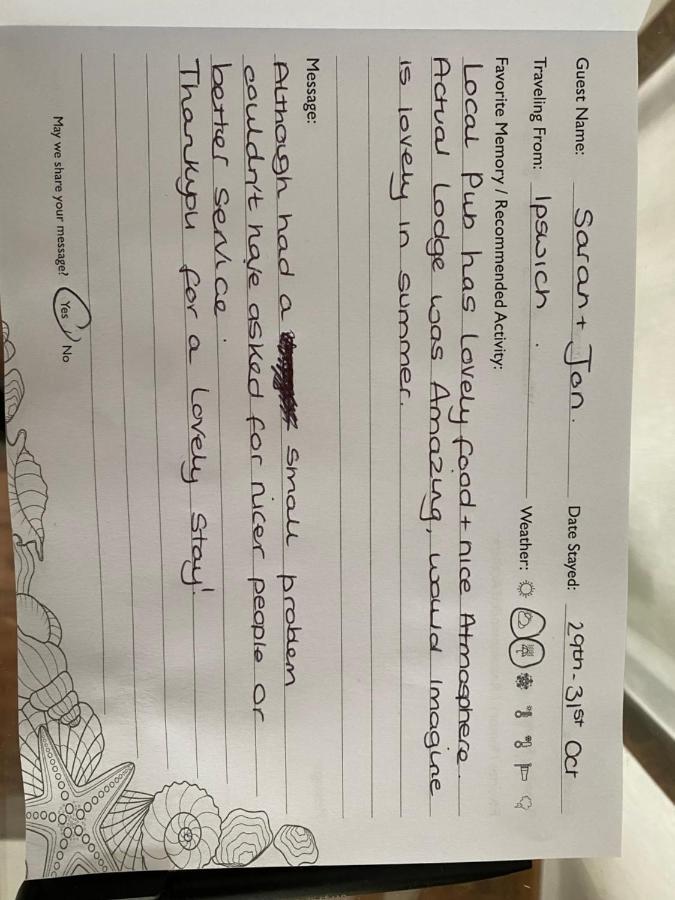 Guest Name: Sarah + Jon. Date Stayed: 29th - 31st Oct
Traveling From: Ipswich . Weather:
Favorite Memory / Recommended Activity:
Local Pub has Lovely food + nice Atmosphere.
Actual Lodge was Amazing, would Imagine
is lovely in summer.
Message:
Although had a small problem
couldn't have asked for nicer people or
better service.
Thankyou for a Lovely Stay!
May we share your message? Yes / No